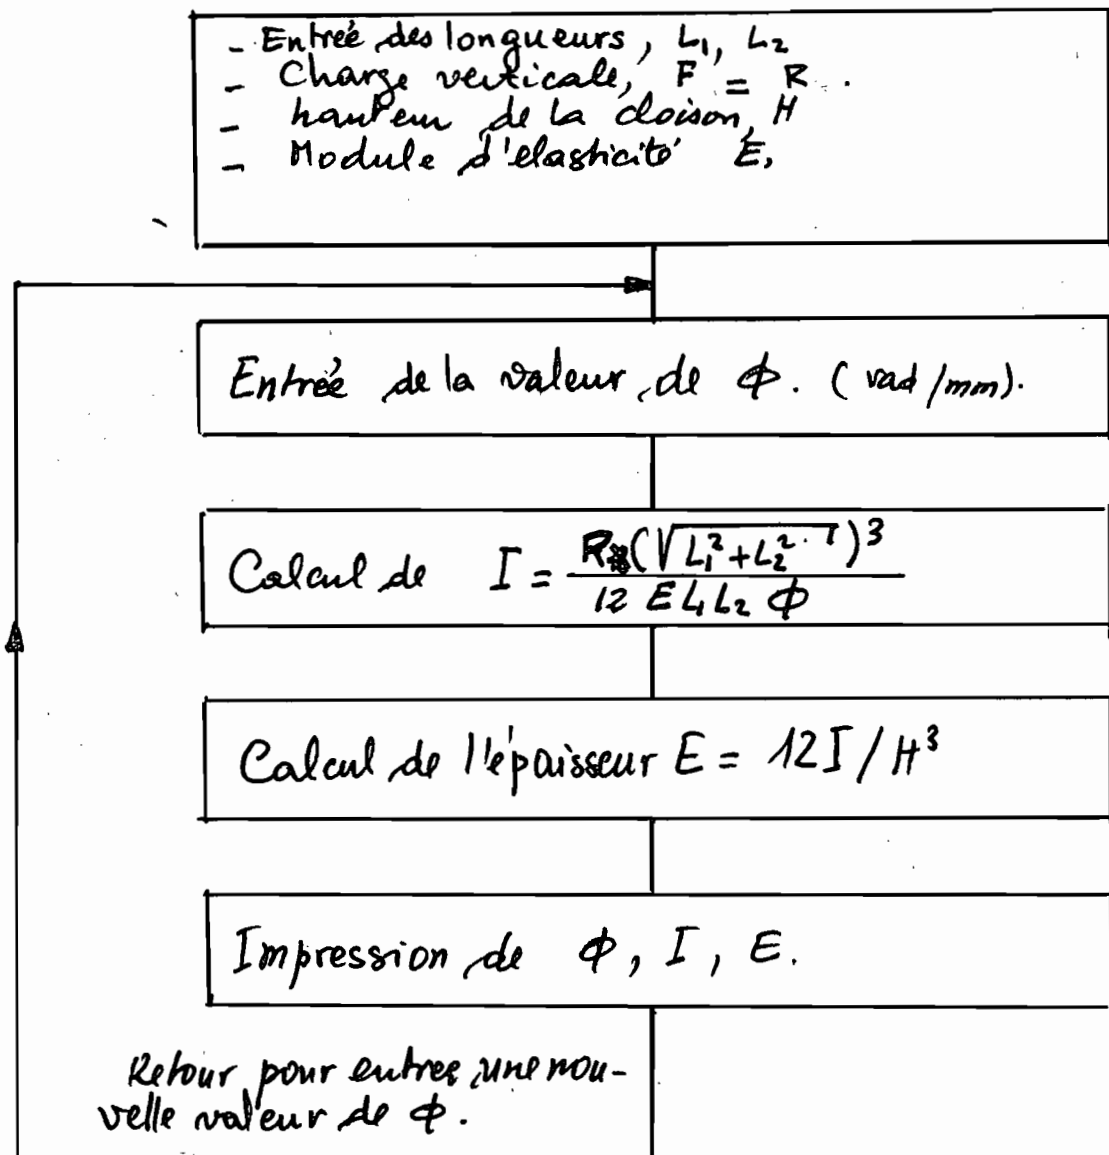 - Entrée des longueurs, L₁, L₂
- Charge verticale, F = R.
- hauteur de la cloison, H
- Module d'elasticité E,
Entrée de la valeur de Φ. (rad/mm).
Calcul de I = R*(√L₁²+L₂²)³ / 12 E L₁ L₂ Φ
Calcul de l'épaisseur E = 12I/H³
Impression de Φ, I, E.
Retour pour entrer une nou-
velle valeur de Φ.